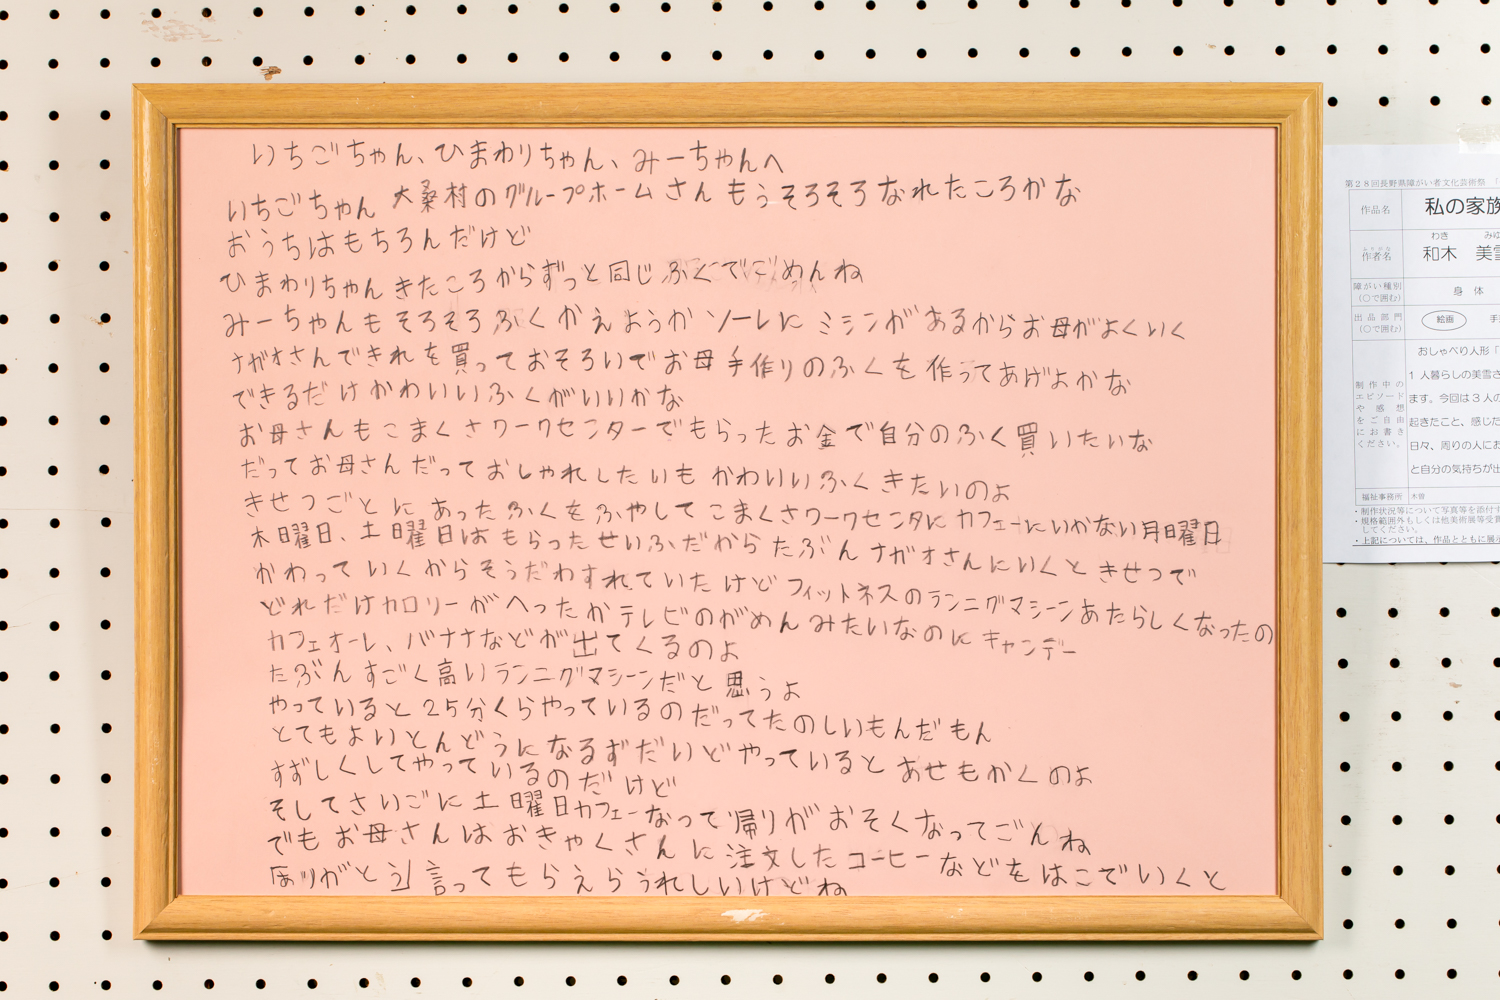 いちごちゃん、ひまわりちゃん、みーちゃんへ
いちごちゃん 大桑村のグループホームさんもうそろそろなれたころかな
おうちはもちろんだけど
ひまわりちゃんきたころからずっと同じふくでごめんね
みーちゃんもそろそろふくかえようかソーレにミシンがあるからお母がよくいく
ナガオさんできれを買っておそろいでお母手作りのふくを作ってあげよかな
できるだけかわいいふくがいいかな
お母さんもこまくさワークセンターでもらったお金で自分のふく買いたいな
だってお母さんだっておしゃれしたいもかわいいふくきたいのよ
きせつごとにあったふくをふやしてこまくさワークセンタにカフェーにいかない月曜日
木曜日、土曜日はもらったせいふだからたぶんナガオさんにいくときせつで
かわっていくからそうだわすれていたけどフィットネスのランニグマシーンあたらしくなったの
どれだけカロリーがへったかテレビのがめんみたいなのにキャンデー
カフェオーレ、バナナなどが出てくるのよ
たぶんすごく高いランニグマシーンだと思うよ
やっていると25分くらやっているのだってたのしいもんだもん
とてもよいとんどうになるずだいどやっているとあせもかくのよ
すずしくしてやっているのだけど
そしてさいごに土曜日カフェーなって帰りがおそくなってごんね
でもお母さんはおきゃくさんに注文したコーヒーなどをはこでいくと
言ってもらえらうれしいけどね
第28回長野県障がい者文化芸術祭
作品名 私の家族
わき みゆ
ふりがな
作者名 和木 美雪
障がい種別
(○で囲む) 身 体
出品部門
(○で囲む) 絵画 手
制作中の
エピソード
や感想
をご自由
にお書き
ください。
おしゃべり人形「
1人暮らしの美雪さ
ます。今回は3人の
起きたこと、感じた
日々、周りの人にお
と自分の気持ちが出
福祉事務所 木曽
・制作状況等について写真等を添付す
・規格範囲外もしくは他美術展等受賞
してください。
・上記については、作品とともに展示